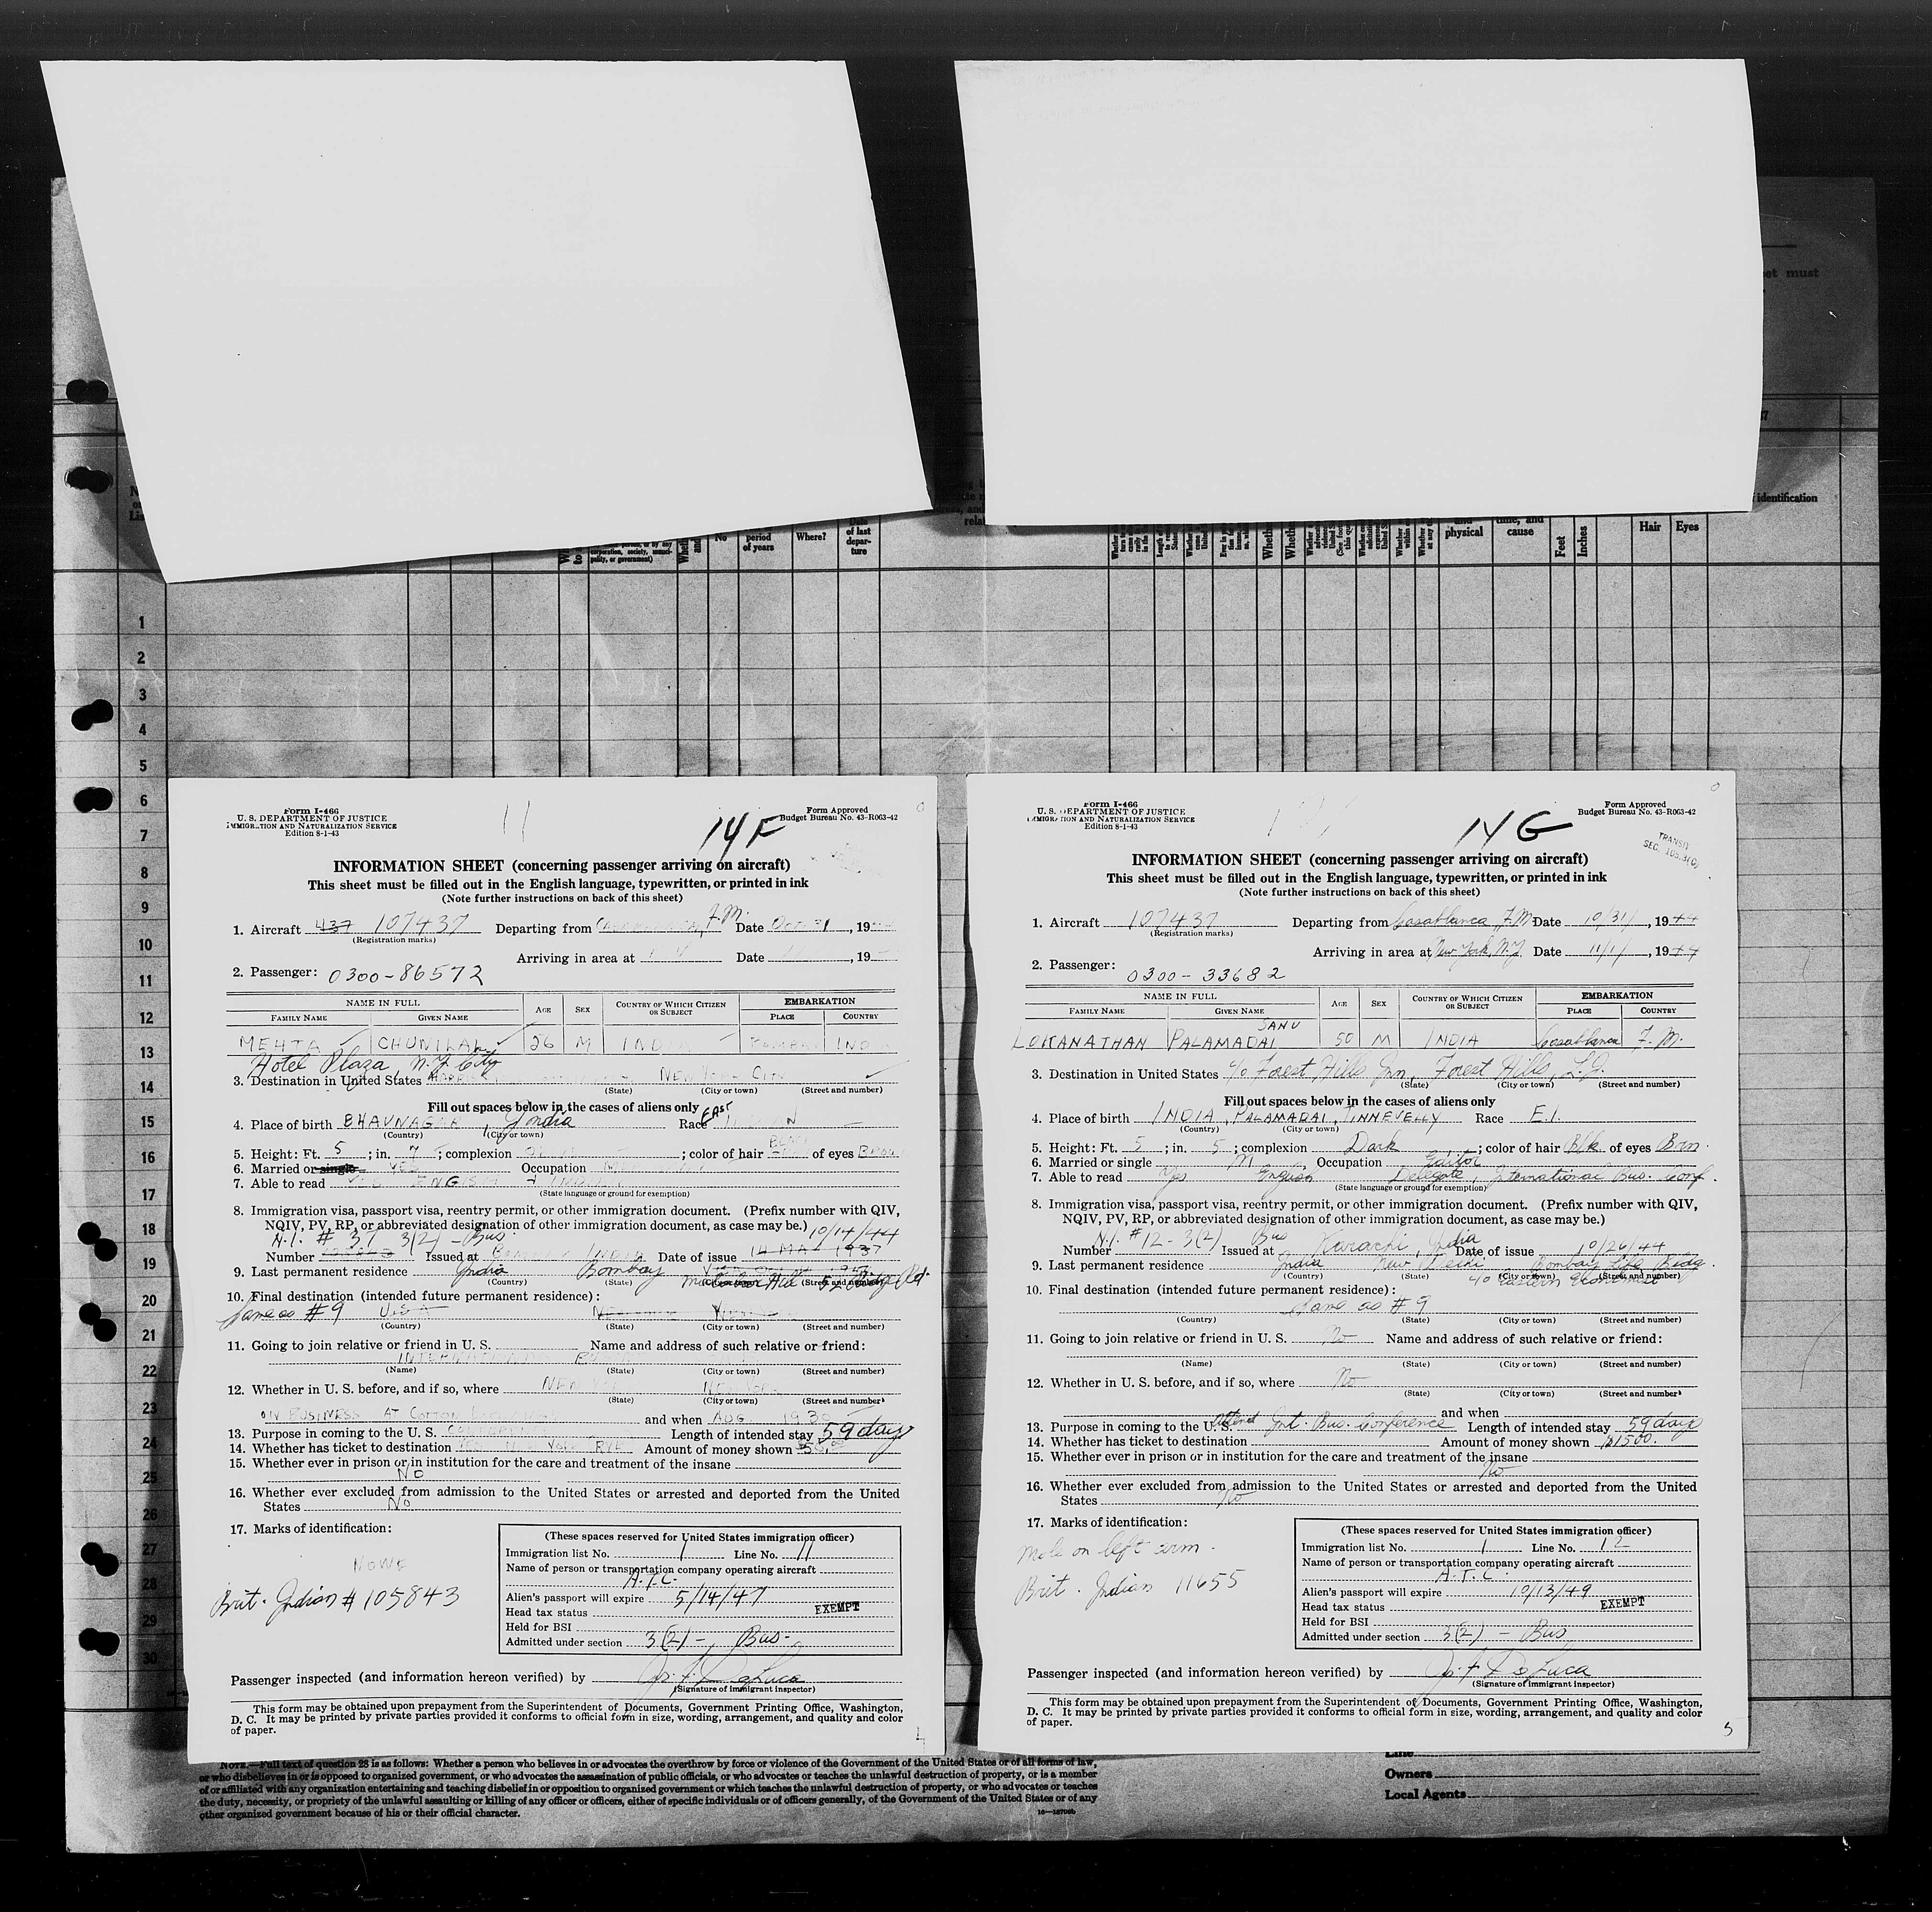 et must
7
identification
Date of last depar- ture
No
period of years
Where?
physical
time, and cause
Feet
Inches
Hair
Eyes
1
2
3
4
5
6
7
8
9
10
11
12
13
14
15
16
17
18
19
20
21
22
23
24
25
26
27
28
29
30
Form I-466
U. S. DEPARTMENT OF JUSTICE
IMMIGRATION AND NATURALIZATION SERVICE
Edition 8-1-43
11
14F
Form Approved
Budget Bureau No. 43-R063-42
INFORMATION SHEET (concerning passenger arriving on aircraft)
This sheet must be filled out in the English language, typewritten, or printed in ink
(Note further instructions on back of this sheet)
1. Aircraft 437 107437 Departing from F.M. Date Oct 31, 19
(Registration marks)
Arriving in area at Date , 19
2. Passenger: 0300-86572
NAME IN FULL AGE SEX COUNTRY OF WHICH CITIZEN OR SUBJECT EMBARKATION
FAMILY NAME GIVEN NAME PLACE COUNTRY
MEHTA CHUNILAL 26 M IND BOMBAY IND
Hotel Plaza, N.Y. City
3. Destination in United States NEW YORK CITY
(State) (City or town) (Street and number)
Fill out spaces below in the cases of aliens only
4. Place of birth BHAVNAGAR, India Race EAST
(Country) (City or town)
5. Height: Ft. 5; in. 7; complexion ; color of hair BLACK of eyes BROW
6. Married or single YES Occupation
7. Able to read YES ENGISH
(State language or ground for exemption)
8. Immigration visa, passport visa, reentry permit, or other immigration document. (Prefix number with QIV,
NQIV, PV, RP, or abbreviated designation of other immigration document, as case may be.) 10/14/44
N.I. # 37 3(2) - Bus
Number Issued at BOMBAY INDIA Date of issue 14 MAY 1937
9. Last permanent residence India Bombay
(Country) (State) (City or town) (Street and number)
10. Final destination (intended future permanent residence):
Same as #9 U.S.A
(Country) (State) (City or town) (Street and number)
11. Going to join relative or friend in U. S. Name and address of such relative or friend:
INTERNATIONAL
(Name) (State) (City or town) (Street and number)
12. Whether in U. S. before, and if so, where NEW YORK NEW YORK
(State) (City or town) (Street and number)
ON BUSINESS AT COTTON and when AUG 193
13. Purpose in coming to the U. S. Length of intended stay 59 days
14. Whether has ticket to destination Amount of money shown
15. Whether ever in prison or in institution for the care and treatment of the insane
No
16. Whether ever excluded from admission to the United States or arrested and deported from the United
States No
17. Marks of identification:
NONE
Brit. Indian # 105843
(These spaces reserved for United States immigration officer)
Immigration list No. 1 Line No. 11
Name of person or transportation company operating aircraft
A.T.C.
Alien's passport will expire 5/14/47
Head tax status EXEMPT
Held for BSI
Admitted under section 3(2) - Bus.
Passenger inspected (and information hereon verified) by Jos. F. DeLuca
(Signature of immigrant inspector)
This form may be obtained upon prepayment from the Superintendent of Documents, Government Printing Office, Washington,
D. C. It may be printed by private parties provided it conforms to official form in size, wording, arrangement, and quality and color
of paper.
4
Form I-466
U. S. DEPARTMENT OF JUSTICE
IMMIGRATION AND NATURALIZATION SERVICE
Edition 8-1-43
12
14G
Form Approved
Budget Bureau No. 43-R063-42
TRANSIT
SEC. 105.3(c)
INFORMATION SHEET (concerning passenger arriving on aircraft)
This sheet must be filled out in the English language, typewritten, or printed in ink
(Note further instructions on back of this sheet)
1. Aircraft 107437 Departing from Casablanca, F.M. Date 10/31/, 1944
(Registration marks)
Arriving in area at New York, N.Y. Date 11/1/, 1944
2. Passenger: 0300-33682
NAME IN FULL AGE SEX COUNTRY OF WHICH CITIZEN OR SUBJECT EMBARKATION
FAMILY NAME GIVEN NAME PLACE COUNTRY
LOKANATHAN PALAMADAI SANU 50 M INDIA Casablanca F.M.
3. Destination in United States c/o Forest Hills Inn, Forest Hills, L.I.
(State) (City or town) (Street and number)
Fill out spaces below in the cases of aliens only
4. Place of birth INDIA, PALAMADAI, TINNEVELLY Race E.I.
(Country) (City or town)
5. Height: Ft. 5; in. 5; complexion Dark; color of hair Blk of eyes Brn
6. Married or single M Occupation Editor
7. Able to read Yes English Delegate, International Bus. Conf.
(State language or ground for exemption)
8. Immigration visa, passport visa, reentry permit, or other immigration document. (Prefix number with QIV,
NQIV, PV, RP, or abbreviated designation of other immigration document, as case may be.)
Number N.I. #12 - 3(2) Bus Issued at Karachi, India Date of issue 10/26/44
9. Last permanent residence India New Delhi Bombay Life Bldg.
(Country) (State) (City or town) (Street and number)
c/o Eastern Economist
10. Final destination (intended future permanent residence):
Same as #9
(Country) (State) (City or town) (Street and number)
11. Going to join relative or friend in U. S. No Name and address of such relative or friend:
(Name) (State) (City or town) (Street and number)
12. Whether in U. S. before, and if so, where No
(State) (City or town) (Street and number)
and when
13. Purpose in coming to the U. S. attend Int. Bus. Conference Length of intended stay 59 days
14. Whether has ticket to destination Amount of money shown $1500.
15. Whether ever in prison or in institution for the care and treatment of the insane
No
16. Whether ever excluded from admission to the United States or arrested and deported from the United
States No
17. Marks of identification:
Mole on left arm.
Brit. Indian 11655
(These spaces reserved for United States immigration officer)
Immigration list No. 1 Line No. 12
Name of person or transportation company operating aircraft
A.T.C.
Alien's passport will expire 10/13/49
Head tax status EXEMPT
Held for BSI
Admitted under section 3(2) - Bus
Passenger inspected (and information hereon verified) by Jos. F. DeLuca
(Signature of immigrant inspector)
This form may be obtained upon prepayment from the Superintendent of Documents, Government Printing Office, Washington,
D. C. It may be printed by private parties provided it conforms to official form in size, wording, arrangement, and quality and color
of paper.
5
NOTE.—Full text of question 28 is as follows: Whether a person who believes in or advocates the overthrow by force or violence of the Government of the United States or of all forms of law,
or who disbelieves in or is opposed to organized government, or who advocates the assassination of public officials, or who advocates or teaches the unlawful destruction of property, or is a member
of or affiliated with any organization entertaining and teaching disbelief in or opposition to organized government or which teaches the unlawful destruction of property, or who advocates or teaches
the duty, necessity, or propriety of the unlawful assaulting or killing of any officer or officers, either of specific individuals or of officers generally, of the Government of the United States or of any
other organized government because of his or their official character.
Line
Owners
Local Agents